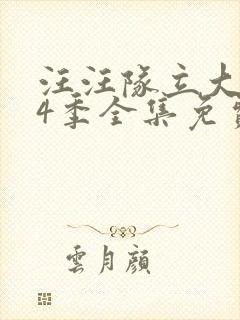 汪汪队立大
4季全集免
雲月顔